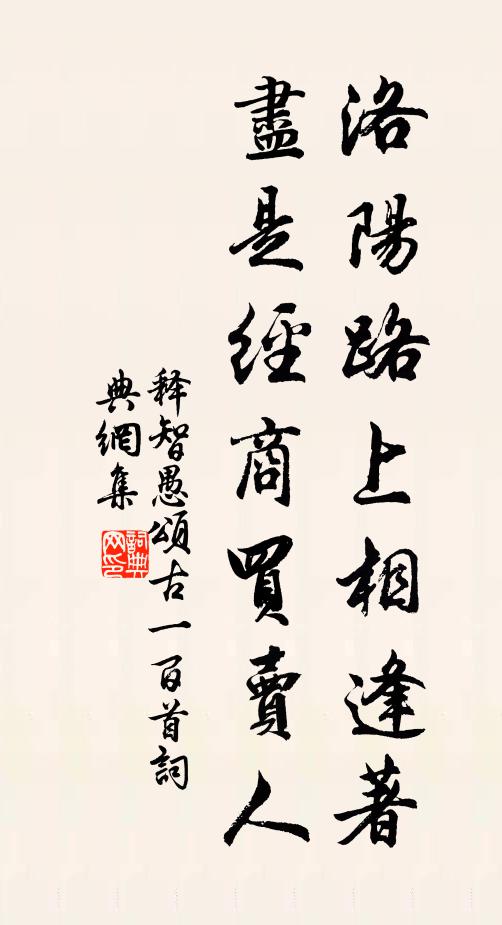 洛陽路上相逢著
盡是經商買賣人
释智愚頌古一百首詞
典網集
詞典
网印